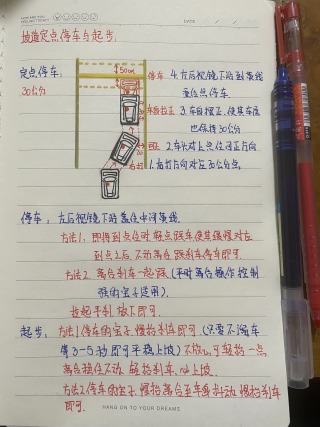 坡道定点停车与起步:
DATE
定点停车:
30公分
50cm
停车 4.左后视镜下沿到黄线
重合点停车
车身摆正 3.车身摆正,使其车尾
也保持30公分
回正 2.车头对上点位回正方向
右打 1.右打方向对左30公分点
停车:左后视镜下沿盖住中间黄线
方法1.即将到点位时轻点踩车使其缓慢对左
到点之后,不动离合踩刹车停车即可
方法2.离合刹车一起踩(平时离合操作控制
强的宝子适用)
拉起手刹放下即可.
起步:方法1.停车的宝子,慢抬刹车即可(只要不溜车
等3-5秒即可平稳上坡)不放心,可轻抬一点
离合稳住不动,轻抬刹车,以上坡
方法2停车的宝子,慢抬离合至车身抖动,慢抬刹车
即可.
HANG ON TO YOUR DREAMS